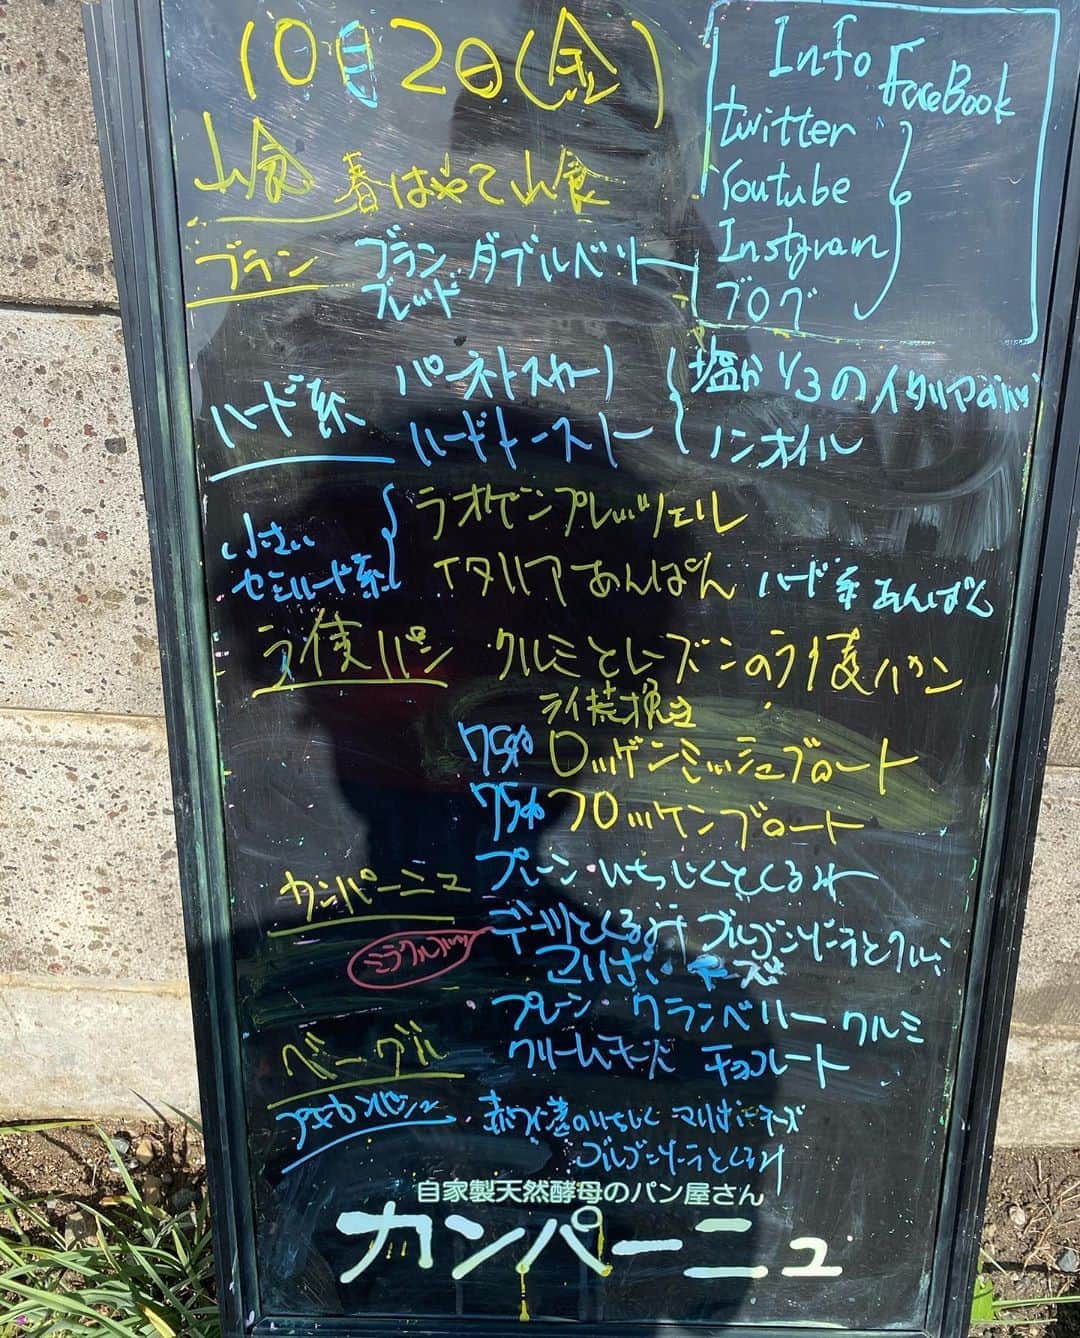 10月2日(金)
Info
FaceBook
twitter
Youtube
Instgram
ブログ
山食 春はやて山食
ブラン ブランブレッド ダブルベリー
ハード系 パーネトスカーノ 塩が1/3のイタリアのパン
ハードトースト ノンオイル
小さい セミハード系 ラオゲンプレッツェル
イタリアあんぱん ハード系あんぱん
ライ麦パン クルミとレーズンのライ麦パン
ライ荒挽き
75% ロッゲンミッシュブロート
75% フロッケンブロート
カンパーニュ プレーン・いちじくとくるみ
ミラクル デーツとくるみ ゴルゴンゾーラとクルミ
マリボーチーズ
ベーグル プレーン クランベリー クルミ
クリームチーズ チョコレート
プチカンパーニュ 赤ワイン漬のいちじく マリボーチーズ
ゴルゴンゾーラとくるみ
自家製天然酵母のパン屋さん
カンパーニュ